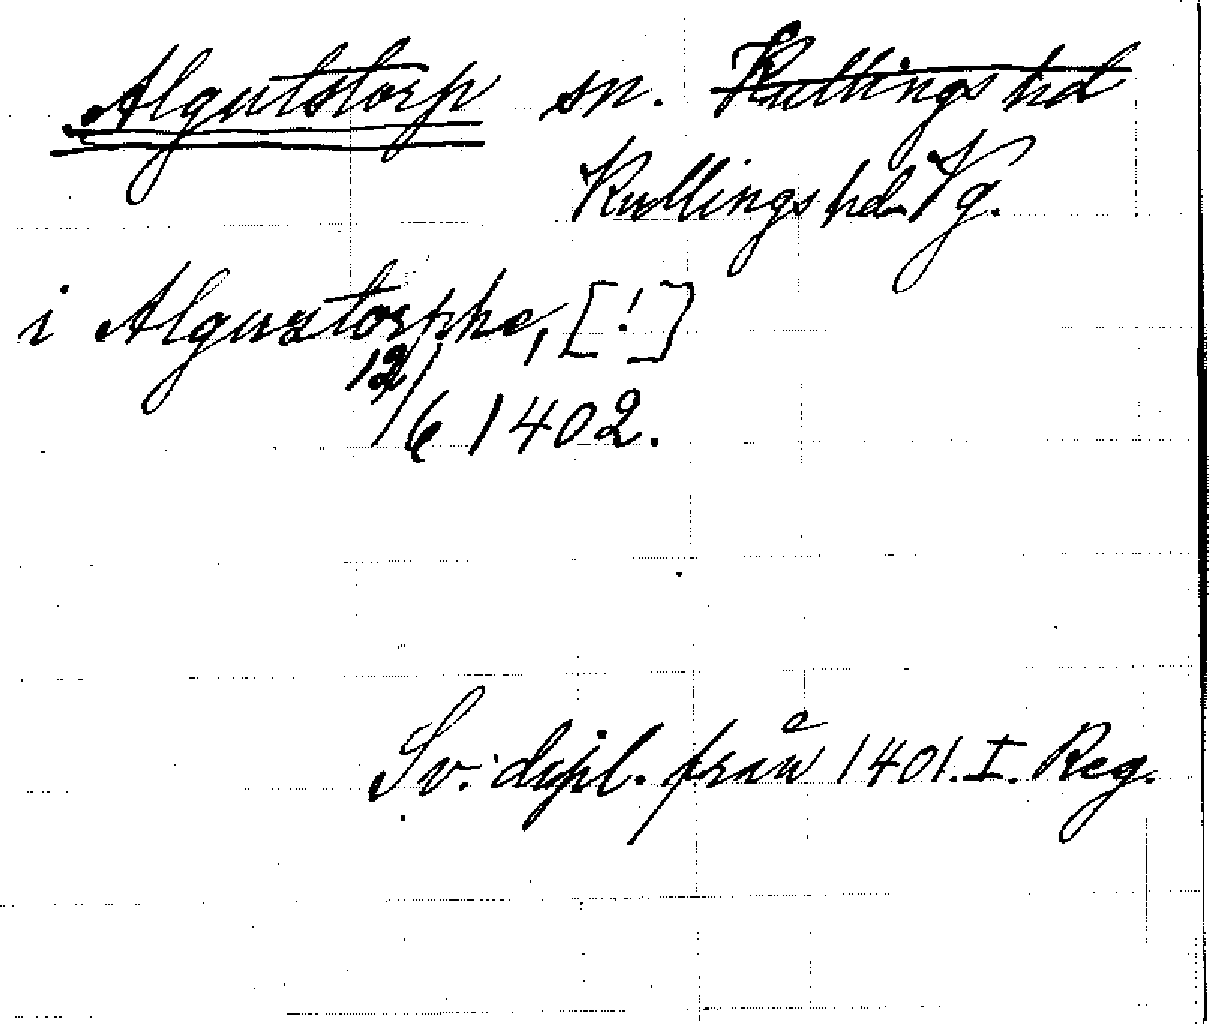 Algutstorp sn. Kullings hd
Kullings hd Vg.
i Algustorphe, [!]
12/6 1402.
Sv. dipl. från 1401. I. Reg.